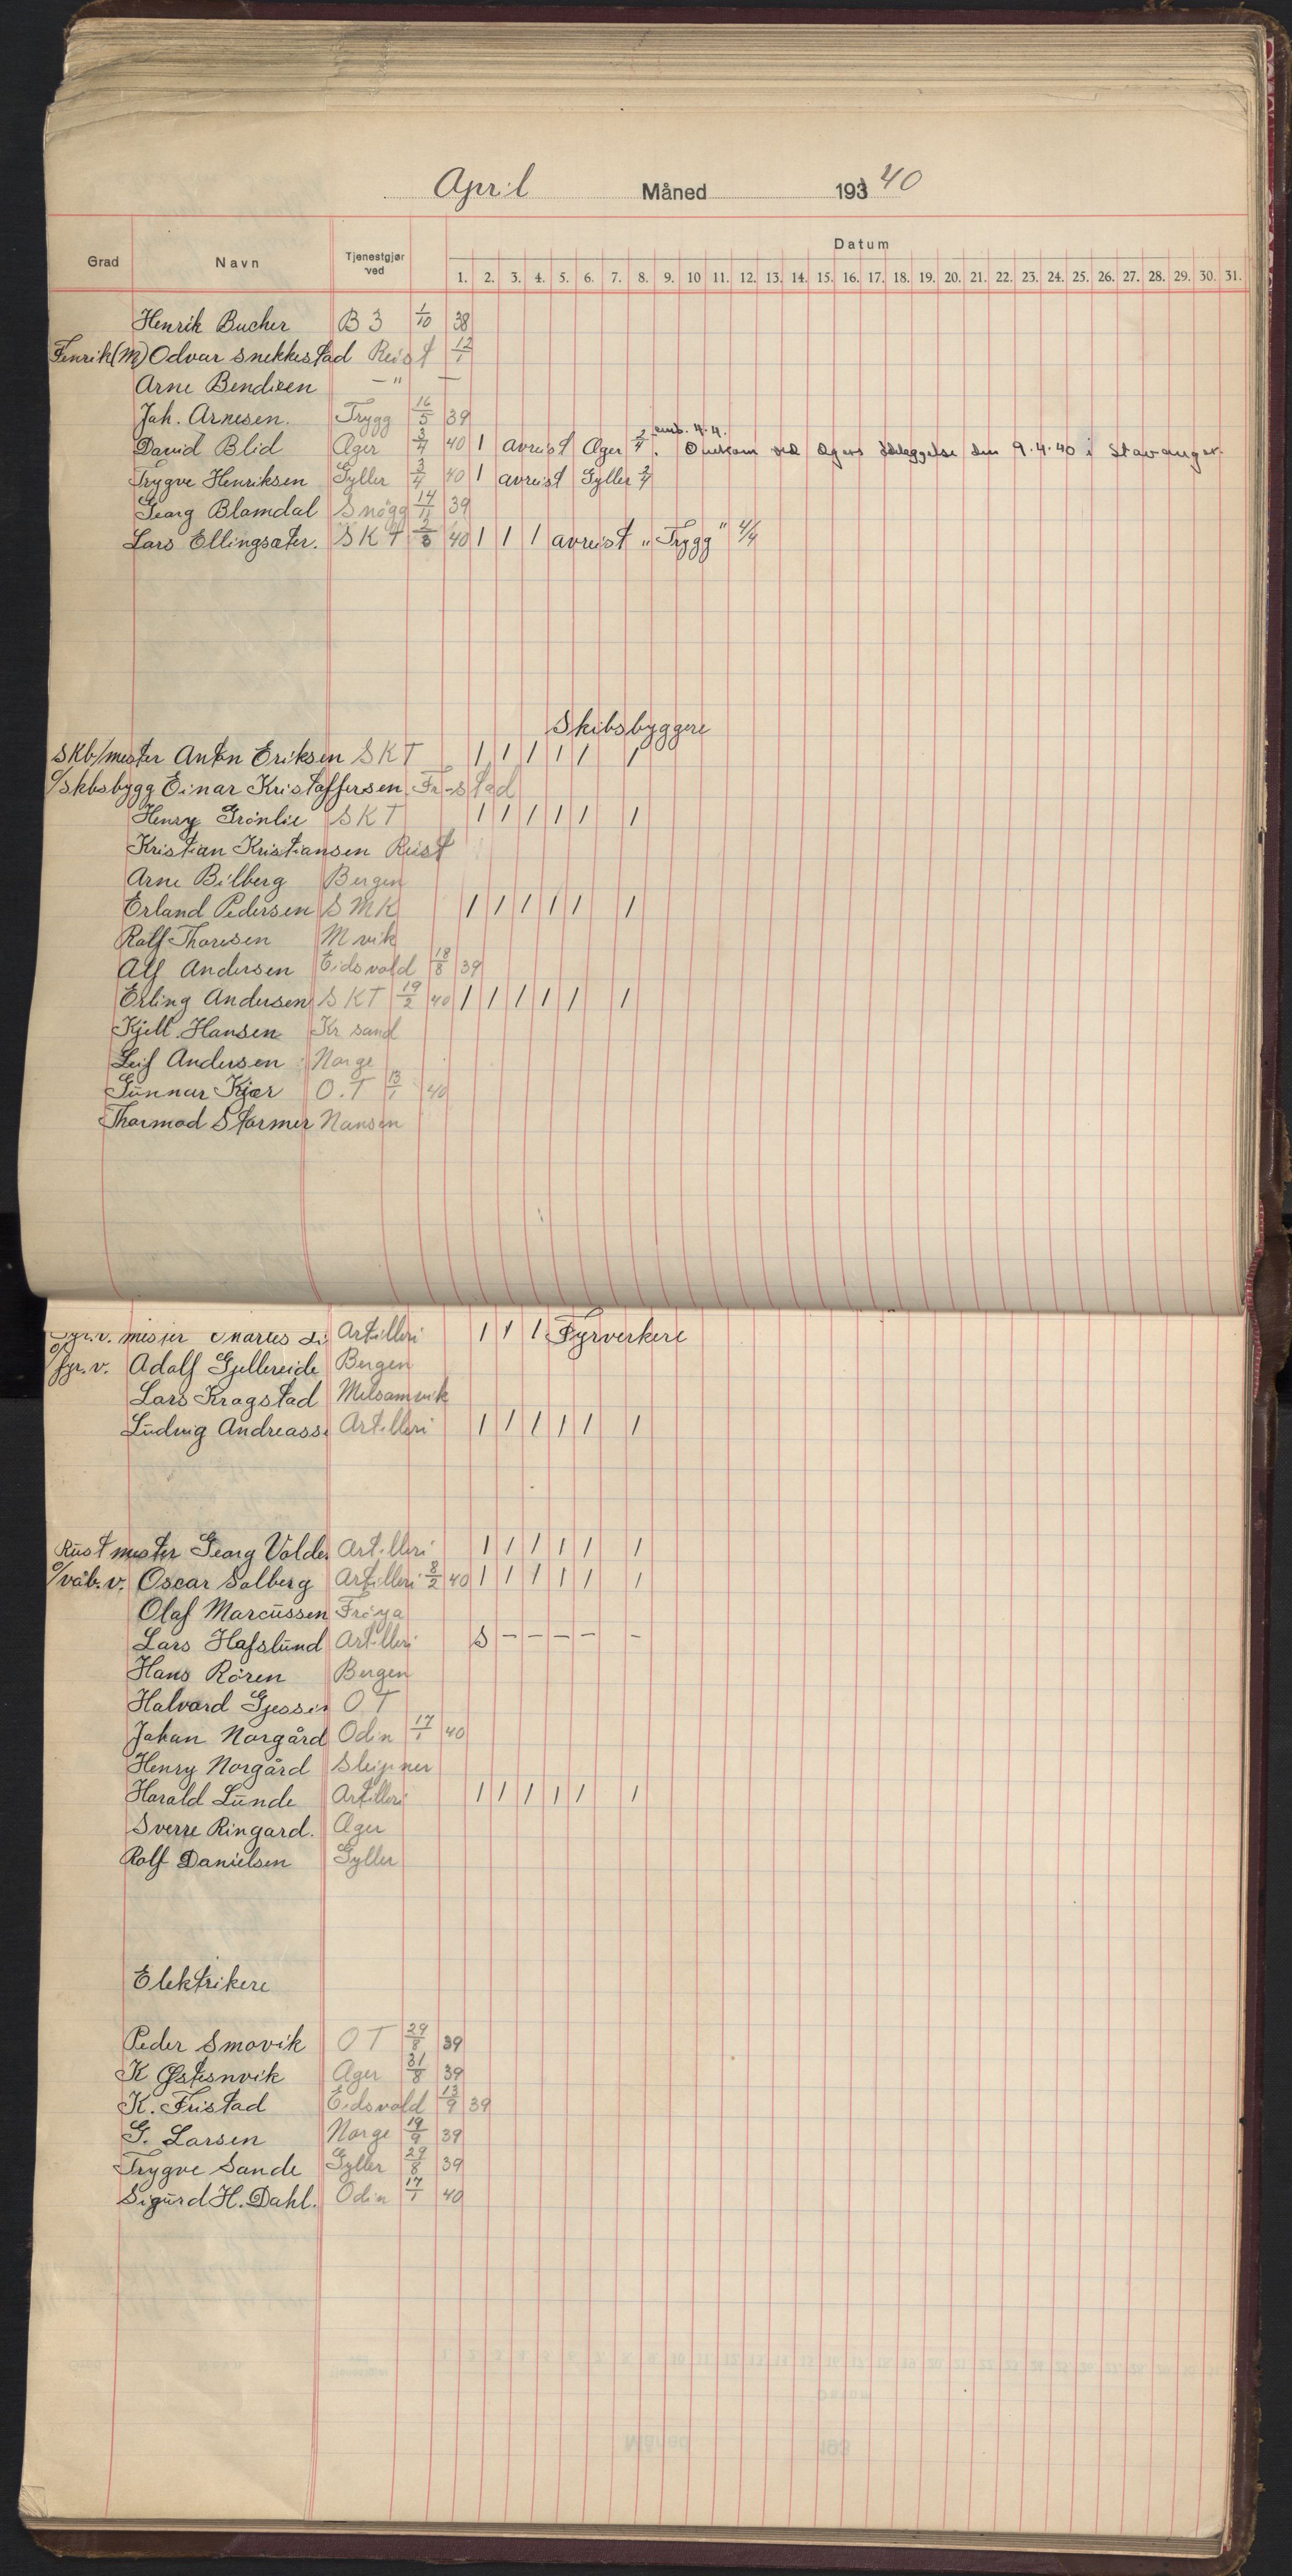 April Måned 193 40
Grad Navn Tjenestgjør ved Datum
1. 2. 3. 4. 5. 6. 7. 8. 9. 10 11. 12. 13. 14. 15. 16. 17. 18. 19. 20. 21. 22. 23. 24. 25. 26. 27. 28. 29. 30. 31.
Henrik Bucher B 3 1/10 38
Fenrik (M) Odvar Snekkestad Reist 12/1
Arne Bendixen — " —
Joh. Arnesen. Trygg 16/5 39
emb. 4.4.
David Blid Æger 3/4 40 1 avreist Æger 2/4. Omkom ved Ægers ødeleggelse den 9.4.40 i Stavanger.
Trygve Henriksen Gyller 3/4 40 1 avreist Gyller 2/4
Georg Blomdal Snøgg 14/11 39
Lars Ellingsæter. S K T 40 1 1 1 avreist "Trygg" 4/4
Skibsbyggere
Skb/mester Anton Eriksen S K T 1 1 1 1 1 1
o/skbsbygg Einar Kristoffersen Fr-stad
Henry Grönlie S K T 1 1 1 1 1 1
Kristian Kristiansen Reist
Arne Bilberg Bergen
Erland Pedersen S M K 1 1 1 1 1 1
Rolf Thoresen M vik
Alf Andersen Eidsvold 18/8 39
Erling Andersen S K T 19/2 40 1 1 1 1 1 1
Kjell Hansen Kr sand
Leif Andersen Norge
Gunnar Kjær O.T 13/1 40
Thormod Stormer Nansen
mester Artilleri 1 1 1 Fyrverkere
o/fyr.v. Adolf Gjellereide Bergen
Lars Kragstad Melsomvik
Ludvig Andreass Artilleri 1 1 1 1 1 1
Rustmester Georg Volde Artilleri 1 1 1 1 1 1
o/våb.v. Oscar Solberg Artilleri 8/2 40 1 1 1 1 1 1
Olaf Marcussen Fröya
Lars Hafslund Artilleri S — — — — —
Hans Rören Bergen
Halvard Gjessin O T
Johan Norgård Odin 17/1 40
Henry Norgård Sleipner
Harald Lunde Artilleri 1 1 1 1 1 1
Sverre Ringard. Æger
Rolf Danielsen Gyller
Elektrikere
Peder Smovik O T 29/8 39
K Østensvik Æger 31/8 39
K. Fristad Eidsvold 13/9 39
G. Larsen Norge 19/9 39
Trygve Sande Gyller 29/8 39
Sigurd H. Dahl. Odin 17/1 40